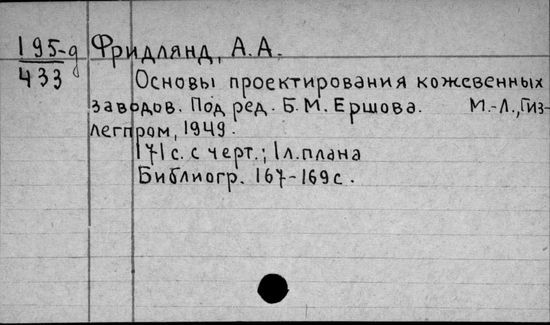 195-д Фридлянд, А.А.
433
Основы проектирования кожевенных
заводов. Под ред. Б.М. Ершова. М.-Л., Гиз-
легпром, 1949.
171 с. с черт.; 1 л. плана
Библиогр. 167-169 с.